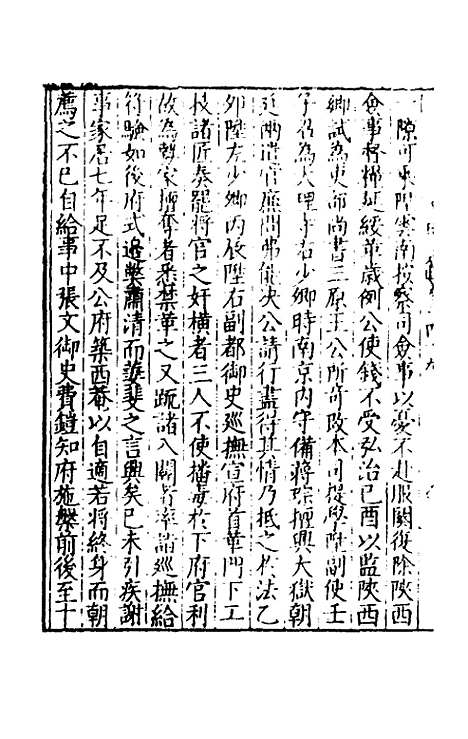 隙可乘陞雲南按察司僉事以憂不赴服闋復除陝西
僉事督糧延綏革歲例公使錢不受弘治己酉以監陝西
鄉試為吏部尚書三原王公所奇改本司提學陞副使壬
子召為大理寺右少卿時南京內守備蔣琮擅興大獄朝
廷兩遣官廉問弗能決公請行盡得其情乃抵之於法乙
卯陞左少卿丙辰陞右副都御史巡撫宣府首革門下工
技諸匠奏罷將官之奸橫者三人不使播毒於下府官利
故為勢家擅奪者悉禁革之又疏諸入關者率詣巡撫給
符驗如後府式邊弊肅清而萋斐之言興矣己未引疾謝
事家居七年足不及公府築西菴以自適若將終身而朝
薦之不已自給事中張文御史費鎧知府施槃前後至十